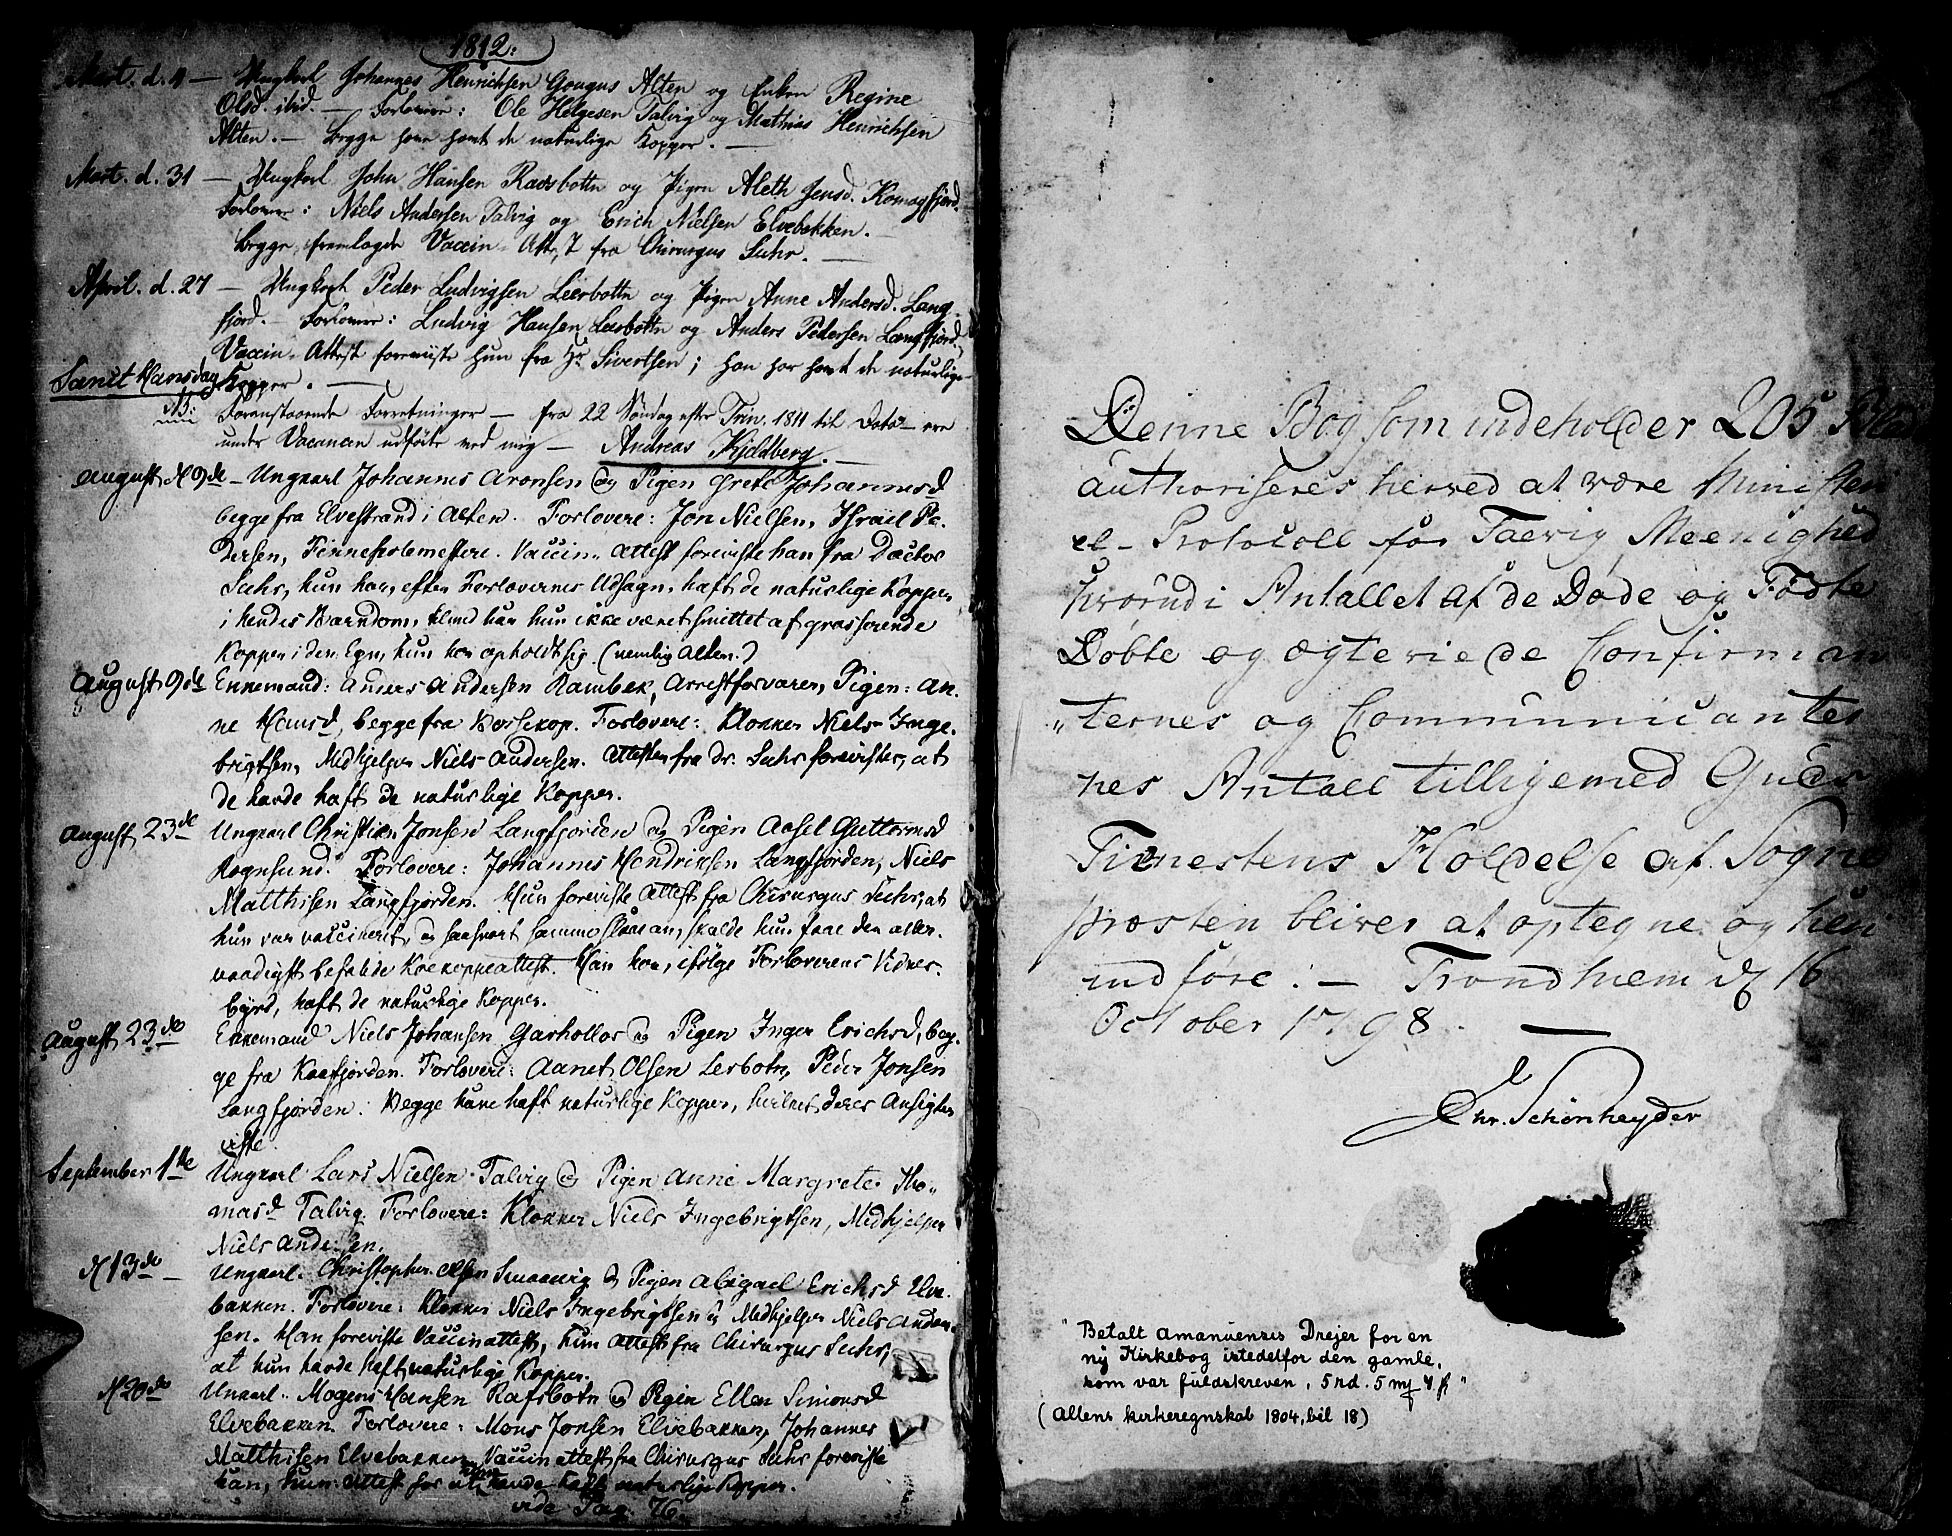 1812:
Mart. d. 4 — Ungkarl Johannes Henrichsen Gougus Alten og Enken Regine
Olsd. ibid. — Forlovere: Ole Helgesen Talvig og Mathias Henrichsen
Alten. — Begge have havt de naturlige Kopper. —
Mart. d. 31 — Ungkarl John Hansen Ravsbottn og Pigen Aleth Jensd. Komagfjord.
Forlovere: Niels Andersen Talvig og Erich Nielsen Elvebakken. —
Begge fremlagde Vaccin-Attest fra Chirurgus Suhr. —
April. d. 27 — Ungkarl Peder Ludvigsen Leerbottn og Pigen Anne Andersd. Lang-
fjord. — Forlovere: Ludvig Hansen Leerbottn og Anders Pedersen Langfjord.
Vaccin-Attest foreviiste hun fra Hr Sivertsen; han har havt de naturlige
Kopper. —
Sanct Hansdag
NB: Foranstaaende Forretninger — fra 22 Søndag efter Trin. 1811 til Dato — ere
under Vacancen udførte ved mig — Andreas Kjeldberg. —
August d 9de — Ungkarl Johannes Aronsen og Pigen Grete Johannesd
begge fra Elvestrand i Alten. Forlovere: Jon Nielsen, Israel Pe-
dersen, Finneskolemestere. Vaccin-Attest foreviste han fra Doctor
Suhr, hun har, efter Forlovernes Udsagn, haft de naturlige Kopper
i hendes Barndom, siden har hun ikke været smittet af grasserende
Kopper i den Egn, hun har opholdt sig. (nemlig Alten.)
August 9de Enkemand: Anders Andersen Rambek, Arrestforvarer, Pigen: An-
ne Hansd, begge fra Bossekop. Forlovere: Klokker Niels Inge-
brigtsen, Medhjelper Niels Andersen. Attester fra Dr. Suhr forevistes, at
de havde haft de naturlige Kopper.
August 23de Ungkarl Christian Jonsen Langfjorden og Pigen Aasel Guttormsd
Rognsund. Forlovere: Johannes Hendriksen Langfjorden, Niels
Matthisen Langfjorden. Hun foreviste Attest fra Chirurgus Suhr, at
hun var vaccineret, og saasnart samme, skulde hun faae den aller-
naadigst befalede Koekoppeattest. Han har, ifølge Forloverens Vidnes-
byrd, haft de naturlige Kopper.
August 23de Enkemand Niels Johansen Garhollos og Pigen Inger Erichsd, beg-
ge fra Kaafjorden. Forlovere: Aanet Olsen Lerbotn, Peder Jonsen
Langfjorden. Begge have haft naturlige Kopper, hvilket deres Ansigter
viste.
September 1ste Ungkarl Lars Nielsen Talvig og Pigen Anne Margrete Tho-
masd Talvig. Forlovere: Klokker Niels Ingebrigtsen, Medhjelper
Niels Andersen.
d 13de — Ungkarl. Christopher Olsen og Pigen Abigael Erichsd Elve-
bakken. Forlovere: Klokker Niels Ingebrigtsen og Medhjelper Niels Ander-
sen. Han foreviste Vaccinattest, hun Attest fra Chirurgus Suhr,
at hun havde haft naturlige Kopper.
d 20de Ungkarl. Mogens Hansen Rafsbotn og Pigen Ellen Simonsd
Elvebakken. Forlovere: Mons Jonsen Elvebakken, Johannes
Matthisen Elvebakken. Vaccinattest fra Chirurgus Suhr foreviste
han, hun Attest for at hun havde haft naturlige Kopper.
vide Pag. 76.
Denne Bog som indeholder 205 Blad
authoriseres herved at være Ministeri
el- Protocoll for Talvig Meenighed
hvorudi Antallet af de Døde og Fødte
Døbte og ægteviede Confirman
"ternes og Communicanter
nes Antall tilligemed Guds
Tienestens Holdelse af Sogne
præsten bliver at optegne og hen
indføre. — Trondhiem d 16
October 1798. —
Chr. Schønheyder
" Betalt amanuensis Drejer for en
ny Kirkebog istedetfor den gamle,
som var fuldskreven, 5 rd. 5 mg 4 β "
(Altens kirkeregnskab 1804, bil 18)